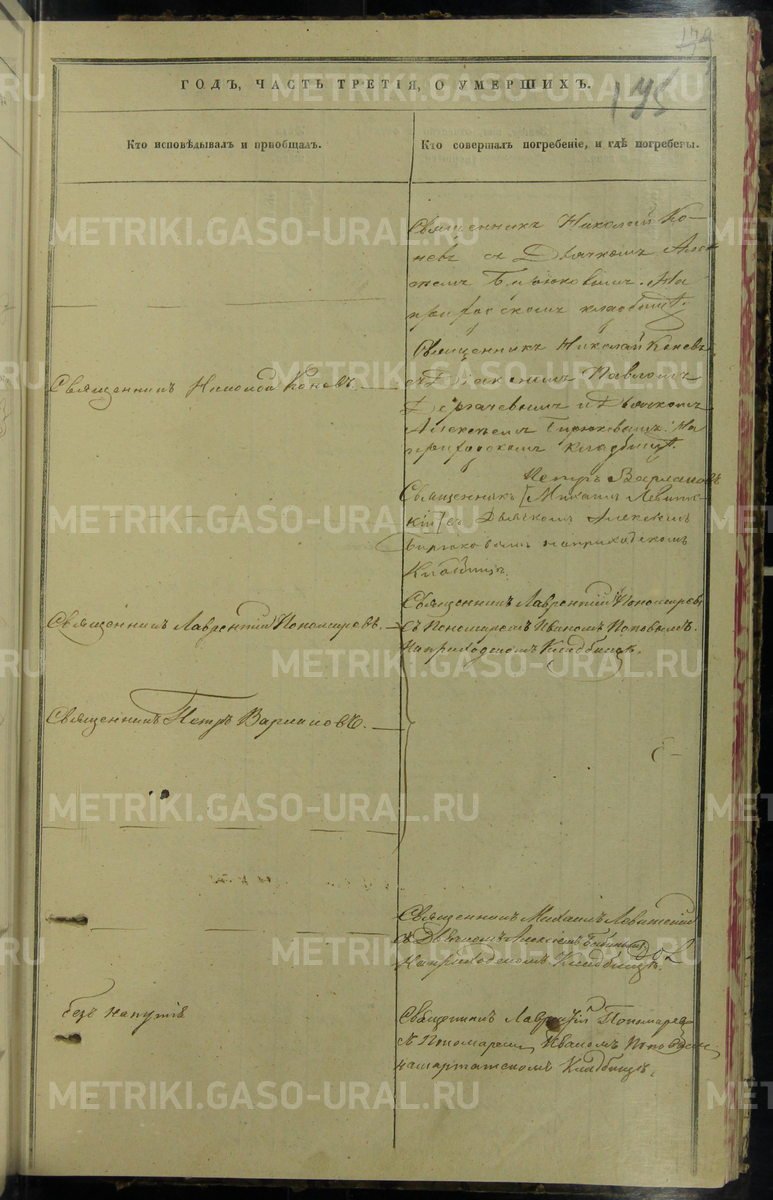 175
ГОДЪ, ЧАСТЬ ТРЕТІЯ, О УМЕРШИХЪ.
Кто исповѣдывалъ и пріобщалъ.
Кто совершалъ погребеніе, и гдѣ погребены.
Священникъ Николай Ко-
невъ съ Дьячкомъ Алек-
Бирюковымъ. На
приходскомъ кладбищѣ.
Священникъ Николай Коневъ.
Священникъ Николай Коневъ
съ Діакономъ Павломъ
Дергачевымъ и Дьячкомъ
Алексѣемъ Бирюковымъ. На
приходскомъ кладбищѣ.
Петръ Варлаковъ
Священникъ [Михаилъ Левитс-
кій] съ Дьячкомъ Алексѣемъ
Бирюковымъ на приходскомъ
Священникъ Лаврентій Пономаревъ.
Священникъ Лаврентій Пономаревъ
съ Пономаремъ Иваномъ Поповымъ.
На приходскомъ Кладбищѣ.
Священникъ Петръ Варлаковъ.
Священникъ Михаилъ Левитскій
съ Дьячкомъ Алексіемъ
На приходскомъ Кладбищѣ.
безъ напутія
Священникъ Лаврентій Пономарев
съ Пономаремъ Иваномъ Поповым
на шарташскомъ Кладбищѣ.
METRIKI.GASO-URAL.RU